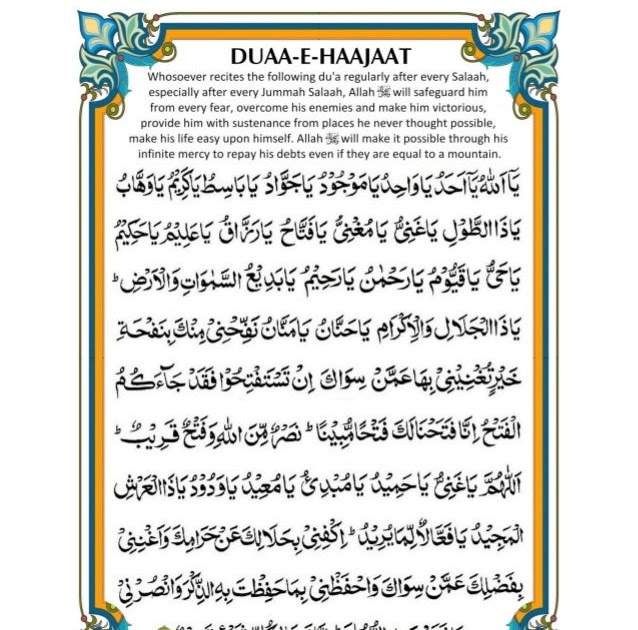 DUAA-E-HAAJAAT
Whosoever recites the following du'a regularly after every Salaah,
especially after every Jummah Salaah, Allah ﷻ will safeguard him
from every fear, overcome his enemies and make him victorious,
provide him with sustenance from places he never thought possible,
make his life easy upon himself. Allah ﷻ will make it possible through his
infinite mercy to repay his debts even if they are equal to a mountain.
يَآ اَللّٰهُ يَآ اَحَدُ يَا وَاحِدُ يَا مَوْجُوْدُ يَا جَوَّادُ يَا بَاسِطُ يَا كَرِيْمُ يَا وَهَّابُ
يَا ذَا الطَّوْلِ يَا غَنِيُّ يَا مُغْنِيُّ يَا فَتَّاحُ يَا رَزَّاقُ يَا عَلِيْمُ يَا حَكِيْمُ
يَا حَيُّ يَا قَيُّوْمُ يَا رَحْمٰنُ يَا رَحِيْمُ يَا بَدِيْعُ السَّمٰوَاتِ وَالْاَرْضِ ؕ
يَا ذَا الْجَلَالِ وَالْاِكْرَامِ يَا حَنَّانُ يَا مَنَّانُ نَفِّحْنِىْ مِنْكَ بِنَفْحَةِ
خَيْرٍ تُغْنِيْنِىْ بِهَا عَمَّنْ سِوَاكَ اِنْ تَسْتَفْتِحُوْا فَقَدْ جَآءَكُمُ
الْفَتْحُ اِنَّا فَتَحْنَا لَكَ فَتْحًا مُّبِيْنًا ؕ نَصْرٌ مِّنَ اللهِ وَفَتْحٌ قَرِيْبٌ ؕ
اَللّٰهُمَّ يَا غَنِيُّ يَا حَمِيْدُ يَا مُبْدِئُ يَا مُعِيْدُ يَا وَدُوْدُ يَا ذَا الْعَرْشِ
الْمَجِيْدُ يَا فَعَّالًا لِّمَا يُرِيْدُ ؕ اِكْفِنِىْ بِحَلَالِكَ عَنْ حَرَامِكَ وَاَغْنِنِىْ
بِفَضْلِكَ عَمَّنْ سِوَاكَ وَاحْفَظْنِىْ بِمَا حَفِظْتَ بِهِ الذِّكْرَ وَانْصُرْنِىْ